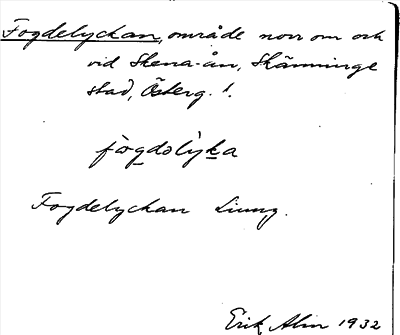 Fogdelyckan, område norr om och
vid Skena-ån, Skänninge
stad, Österg. l.
fò̀gdolýka
Fogdelyckan Ljung.
Erik Alm 1932